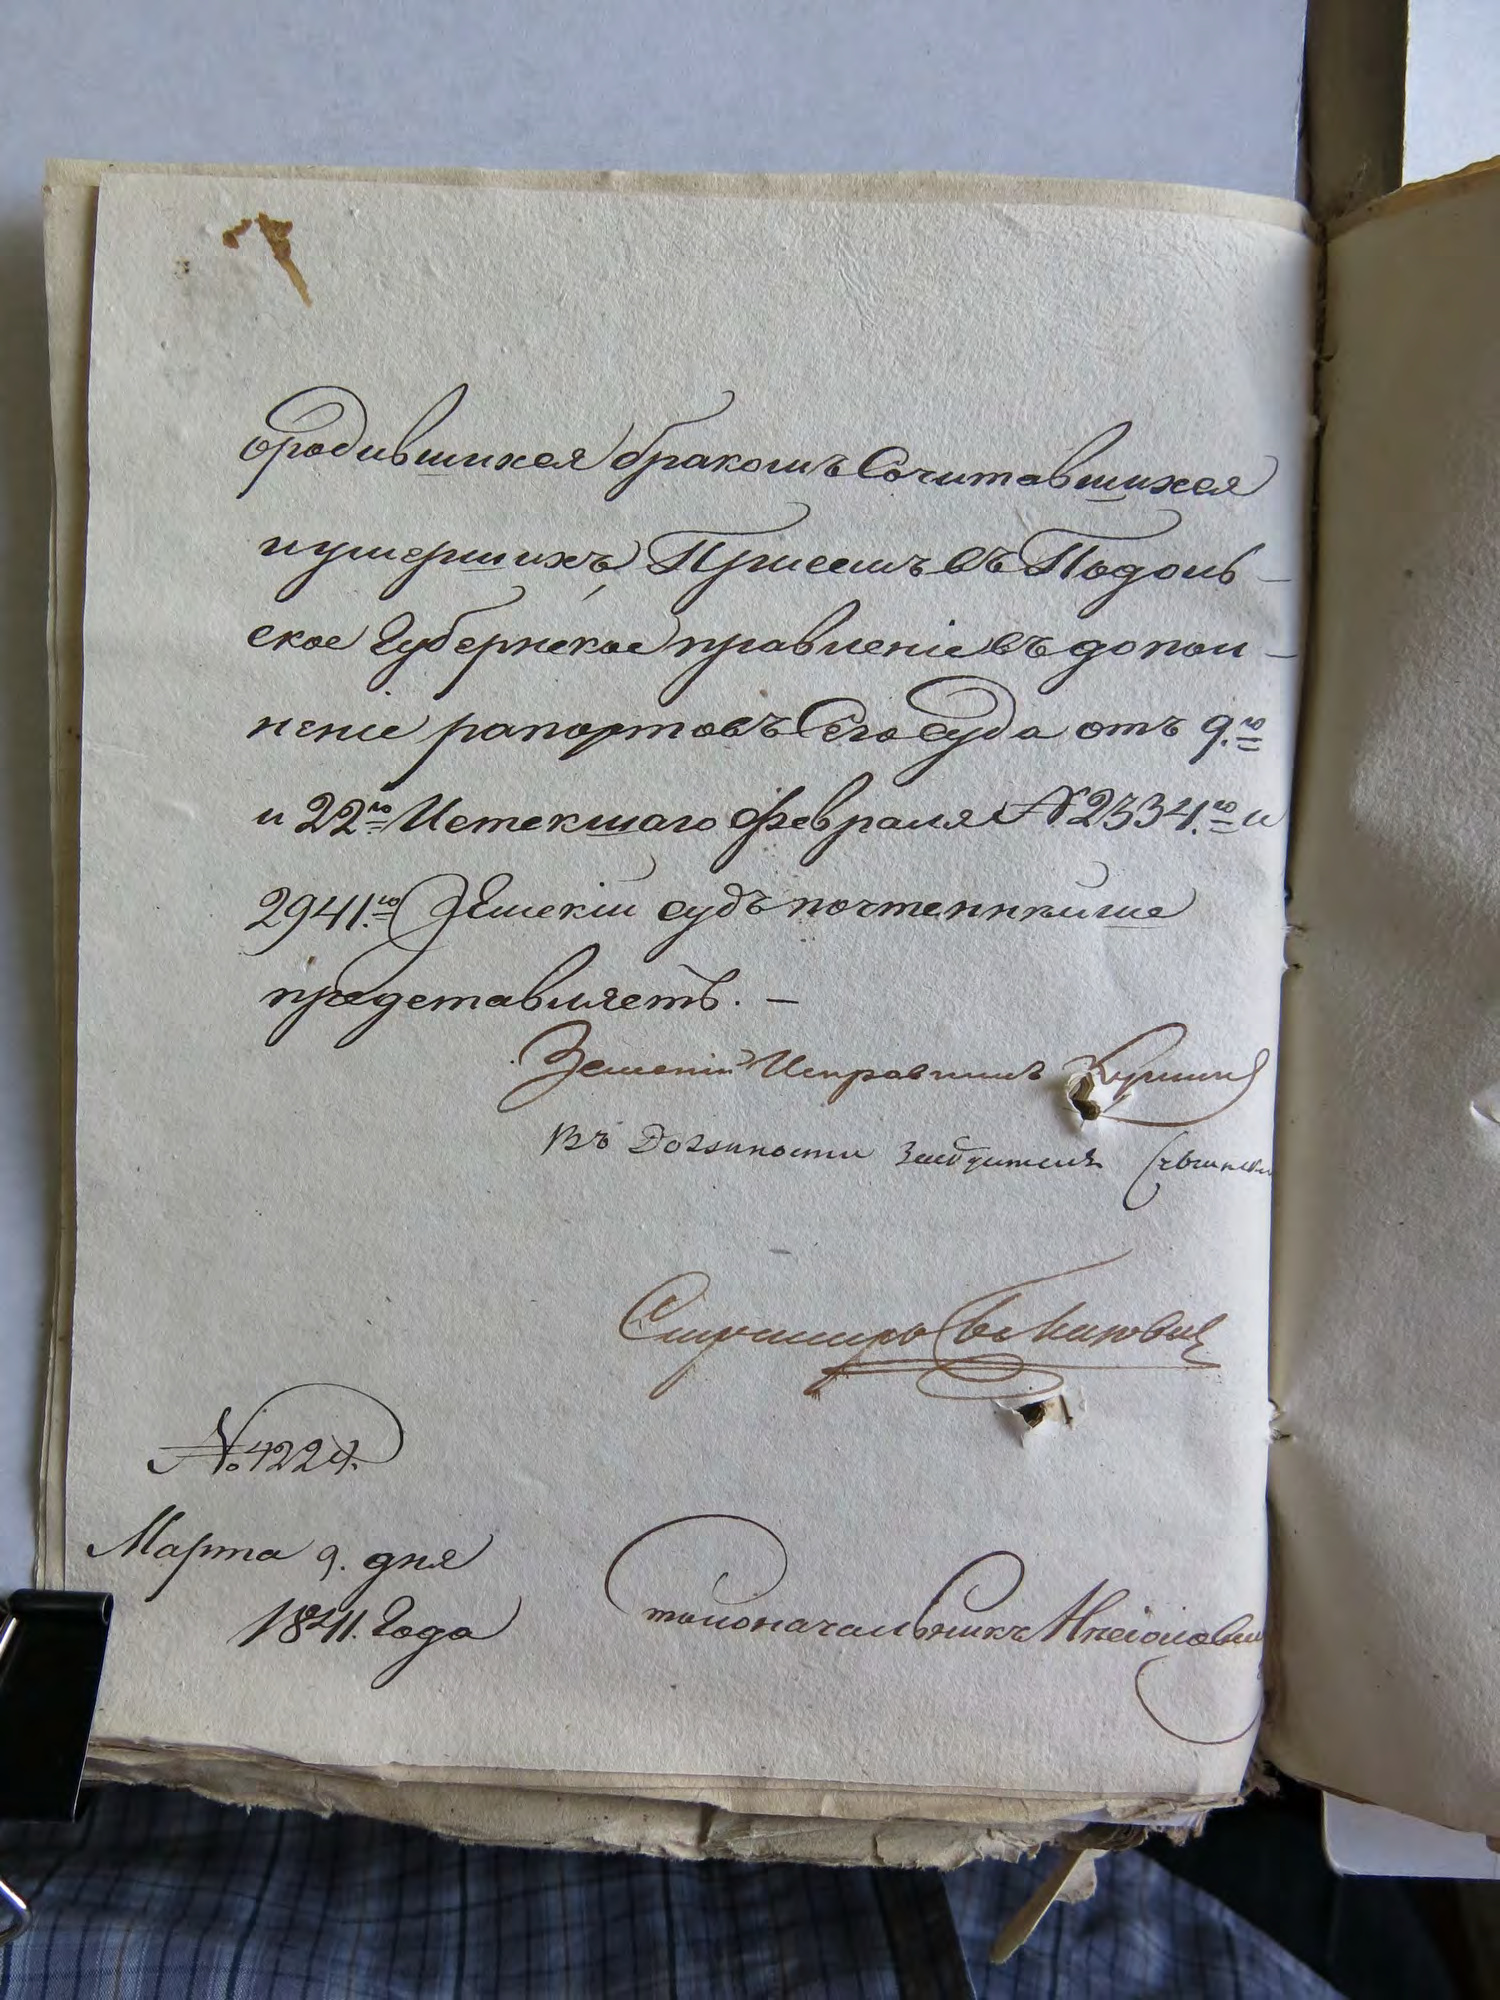 ородившихся бракомъ Сочитавшихся
иумершихъ, При семъ въ Подоль-
ское Губернское правленіе въ допол-
неніе рапортовъ Сего Суда отъ 9.го
и 22го Истекшаго февраля № 2334.го и
2941.го Земскій судъ почтеннейше
представляетъ. —
Земскій Исправникъ
Въ Должности Засѣдателя
Секретарь
№ 4224.
Марта 9. дня
1841. Года
столоначальникъ